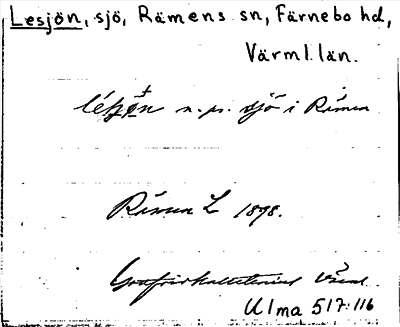 Lesjön, sjö, Rämens sn, Färnebo hd,
Värml. län.
n. pr. sjö i Rämen
Rämen L 1898.
Värml.
Ulma 517:116